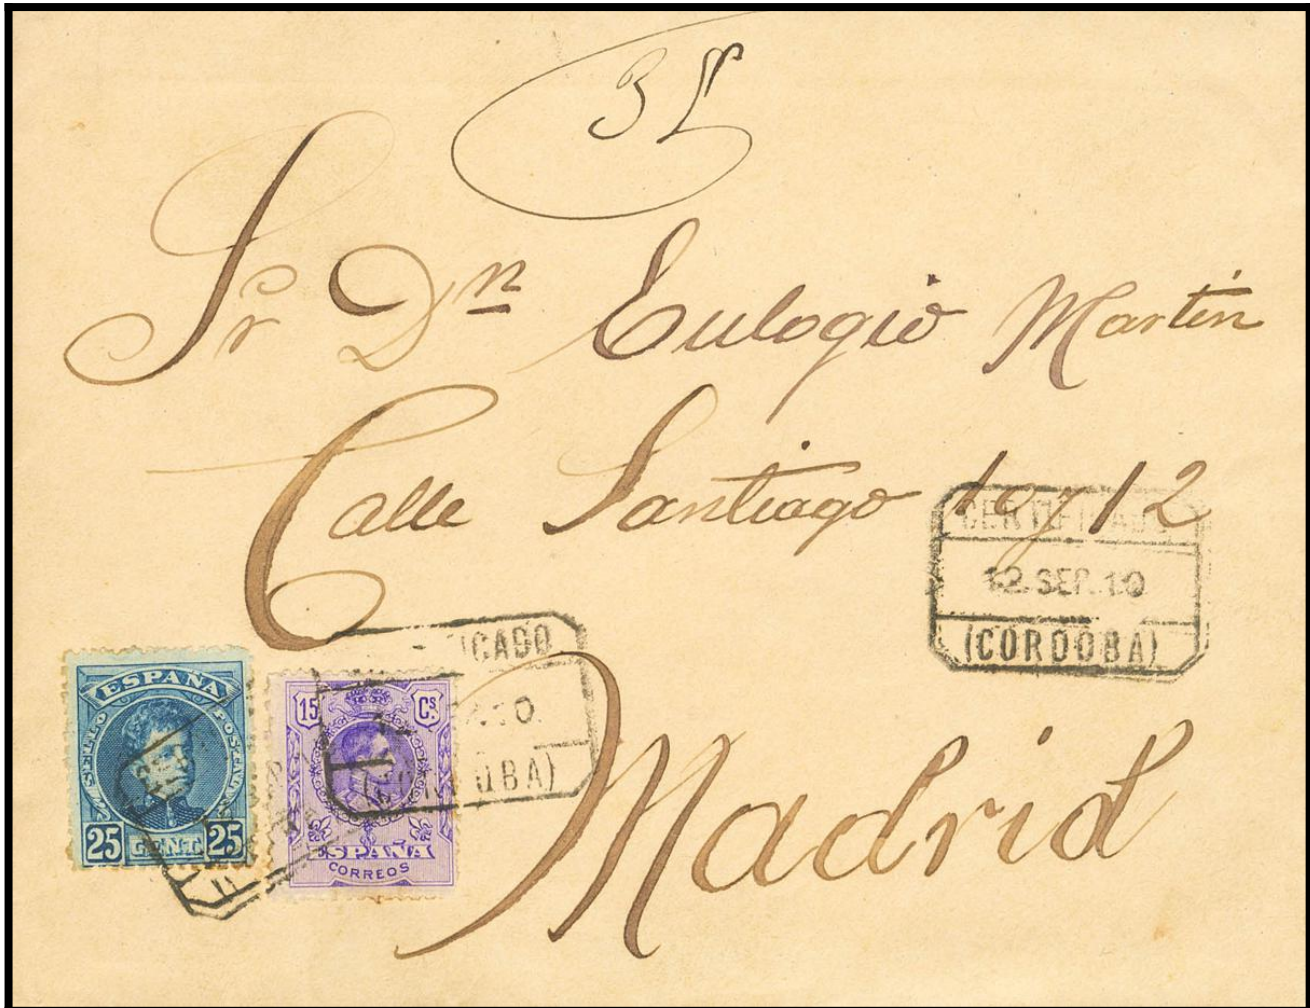 32
Sr Dn Eulogio Martin
Calle Santiago 10 y 12
CERTIFICADO
12.SEP.10
(CORDOBA)
Madrid
ESPAÑA
SELLO POSTAL
25 CENT. 25
15 Cs.
ESPAÑA
CORREOS